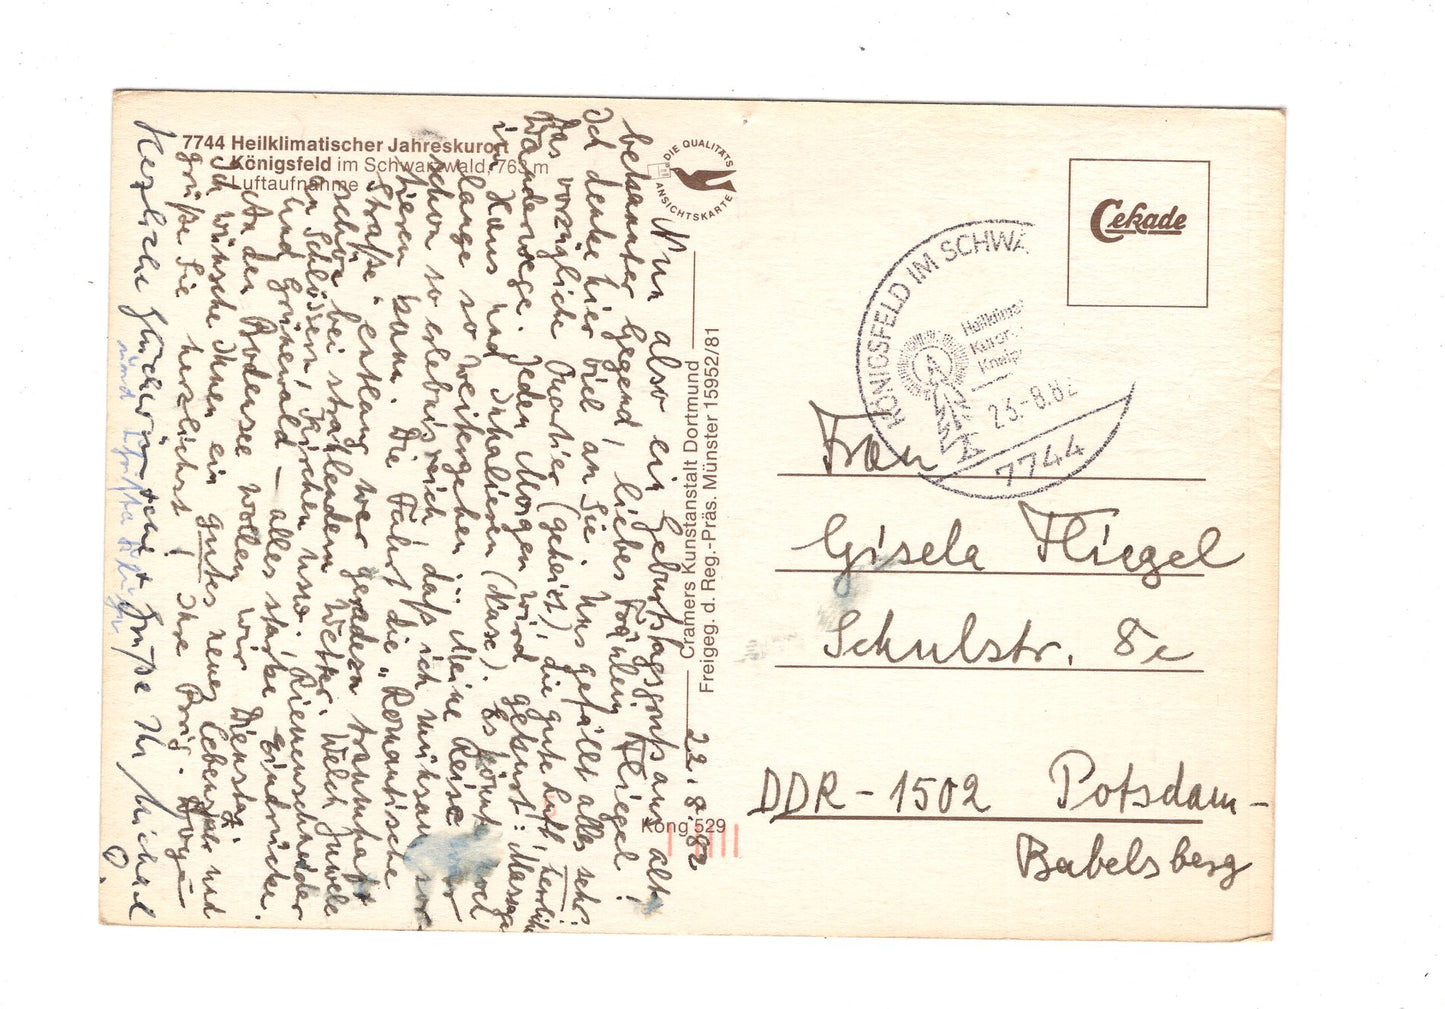 7744 Heilklimatischer Jahreskurort
Königsfeld im Schwarzwald, 763 m
Luftaufnahme
DIE QUALITÄTS
ANSICHTSKARTE
Cramers Kunstanstalt Dortmund
Freigeg. d. Reg.-Präs. Münster 15952/81
Köng 529
22.8.82
Nun also ein Geburtstagsgruß aus alt-
bekannter Gegend, liebes Fräulein Fliegel!
Ich denke hier viel an Sie. Uns gefällt alles sehr:
Das vorzügliche Quartier (geheizt), die gute Luft, herrliche
Wanderwege. Jeden Morgen wird gekurt: Massage
im Haus und Inhalieren (Nase). Es könnte noch
lange so weitergehen ... Meine Reise war
schon so erlebnisreich, daß ich mühsam sor-
tieren kann. Die Fahrt die "Romantische
Straße" entlang war geradezu traumhaft
schön bei strahlendem Wetter. Welch Juwele
an Schlössern, Kirchen usw. Riemenschneider
und Grünewald – alles starke Eindrücke.
An den Bodensee wollen wir Dienstag.
Ich wünsche Ihnen ein gutes neues Lebensjahr und
grüße Sie herzlichst! Ihre Brig.
Herzliche Glückwünsche + Grüße Ihr Michael
und
KÖNIGSFELD IM SCHWA
Heilklima
Kuror
23.-8.82
7744
Cekade
Frau
Gisela Fliegel
Schulstr. 8c
DDR-1502 Potsdam-
Babelsberg